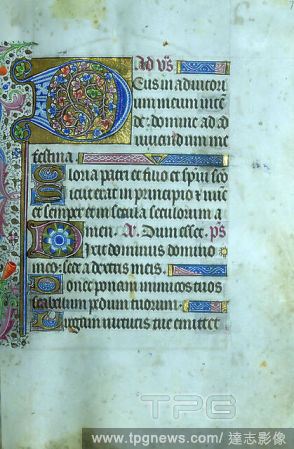 Ad vs
Deus in adiutori
um meum inte
de: domine ad ad
iuuandum me
festina
Gloria patri et filio et spiui sco
Sicut erat in principio et nuc
et semper et in secula seculorum a
men. a. Dum esset. ps
Dixit dominus domino
meo: sede a dextris meis.
Donec ponam inimicos tuos
scabellum pedum tuorum.
Virgam virtutis tue emittet
TPG
www.tpgnews.com / 達志影像